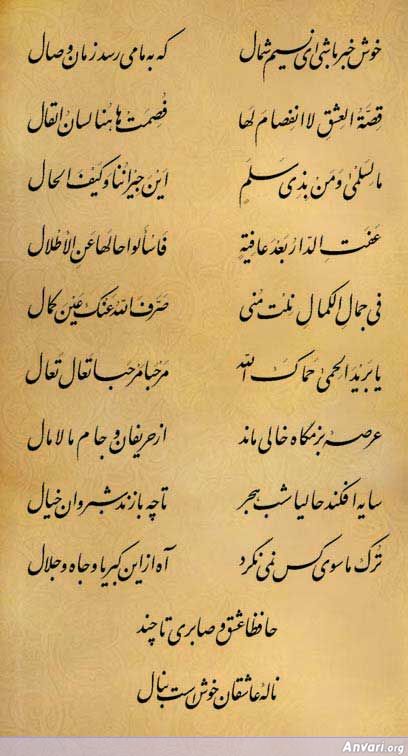 خوش خبر باشی ای نسیم شمال که به ما می رسد زمان وصال
قِصَّةُ العِشقِ لا انفِصامَ لَها فُصِمَت ها هُنا لسانُ القال
ما لِسَلمیٰ وَ مَن بِذی سَلَمٍ اَینَ جیرانُنا وَ کَیفَ الحال
عَفَتِ الدّارُ بَعدَ عافِیَةٍ فَاسأَلوا حالَها عَنِ الاَطلال
فی جمالِ الکمالِ نِلتَ مُنی صَرَّفَ اللهُ عَنکَ عَینَ کَمال
یا بَریدَ الحِمیٰ حَماکَ اللّه مَرحَباً مَرحَباً تَعالَ تَعال
عرصه بزمگاه خالی ماند از حریفان و جام مالامال
سایه افکند حالیا شب هجر تا چه بازند شبروان خیال
تُرک ما سوی کس نمی نگرد آه از این کبریا و جاه و جلال
حافظا عشق و صابری تا چند
نالهٔ عاشقان خوش است بنال
Anvari.org